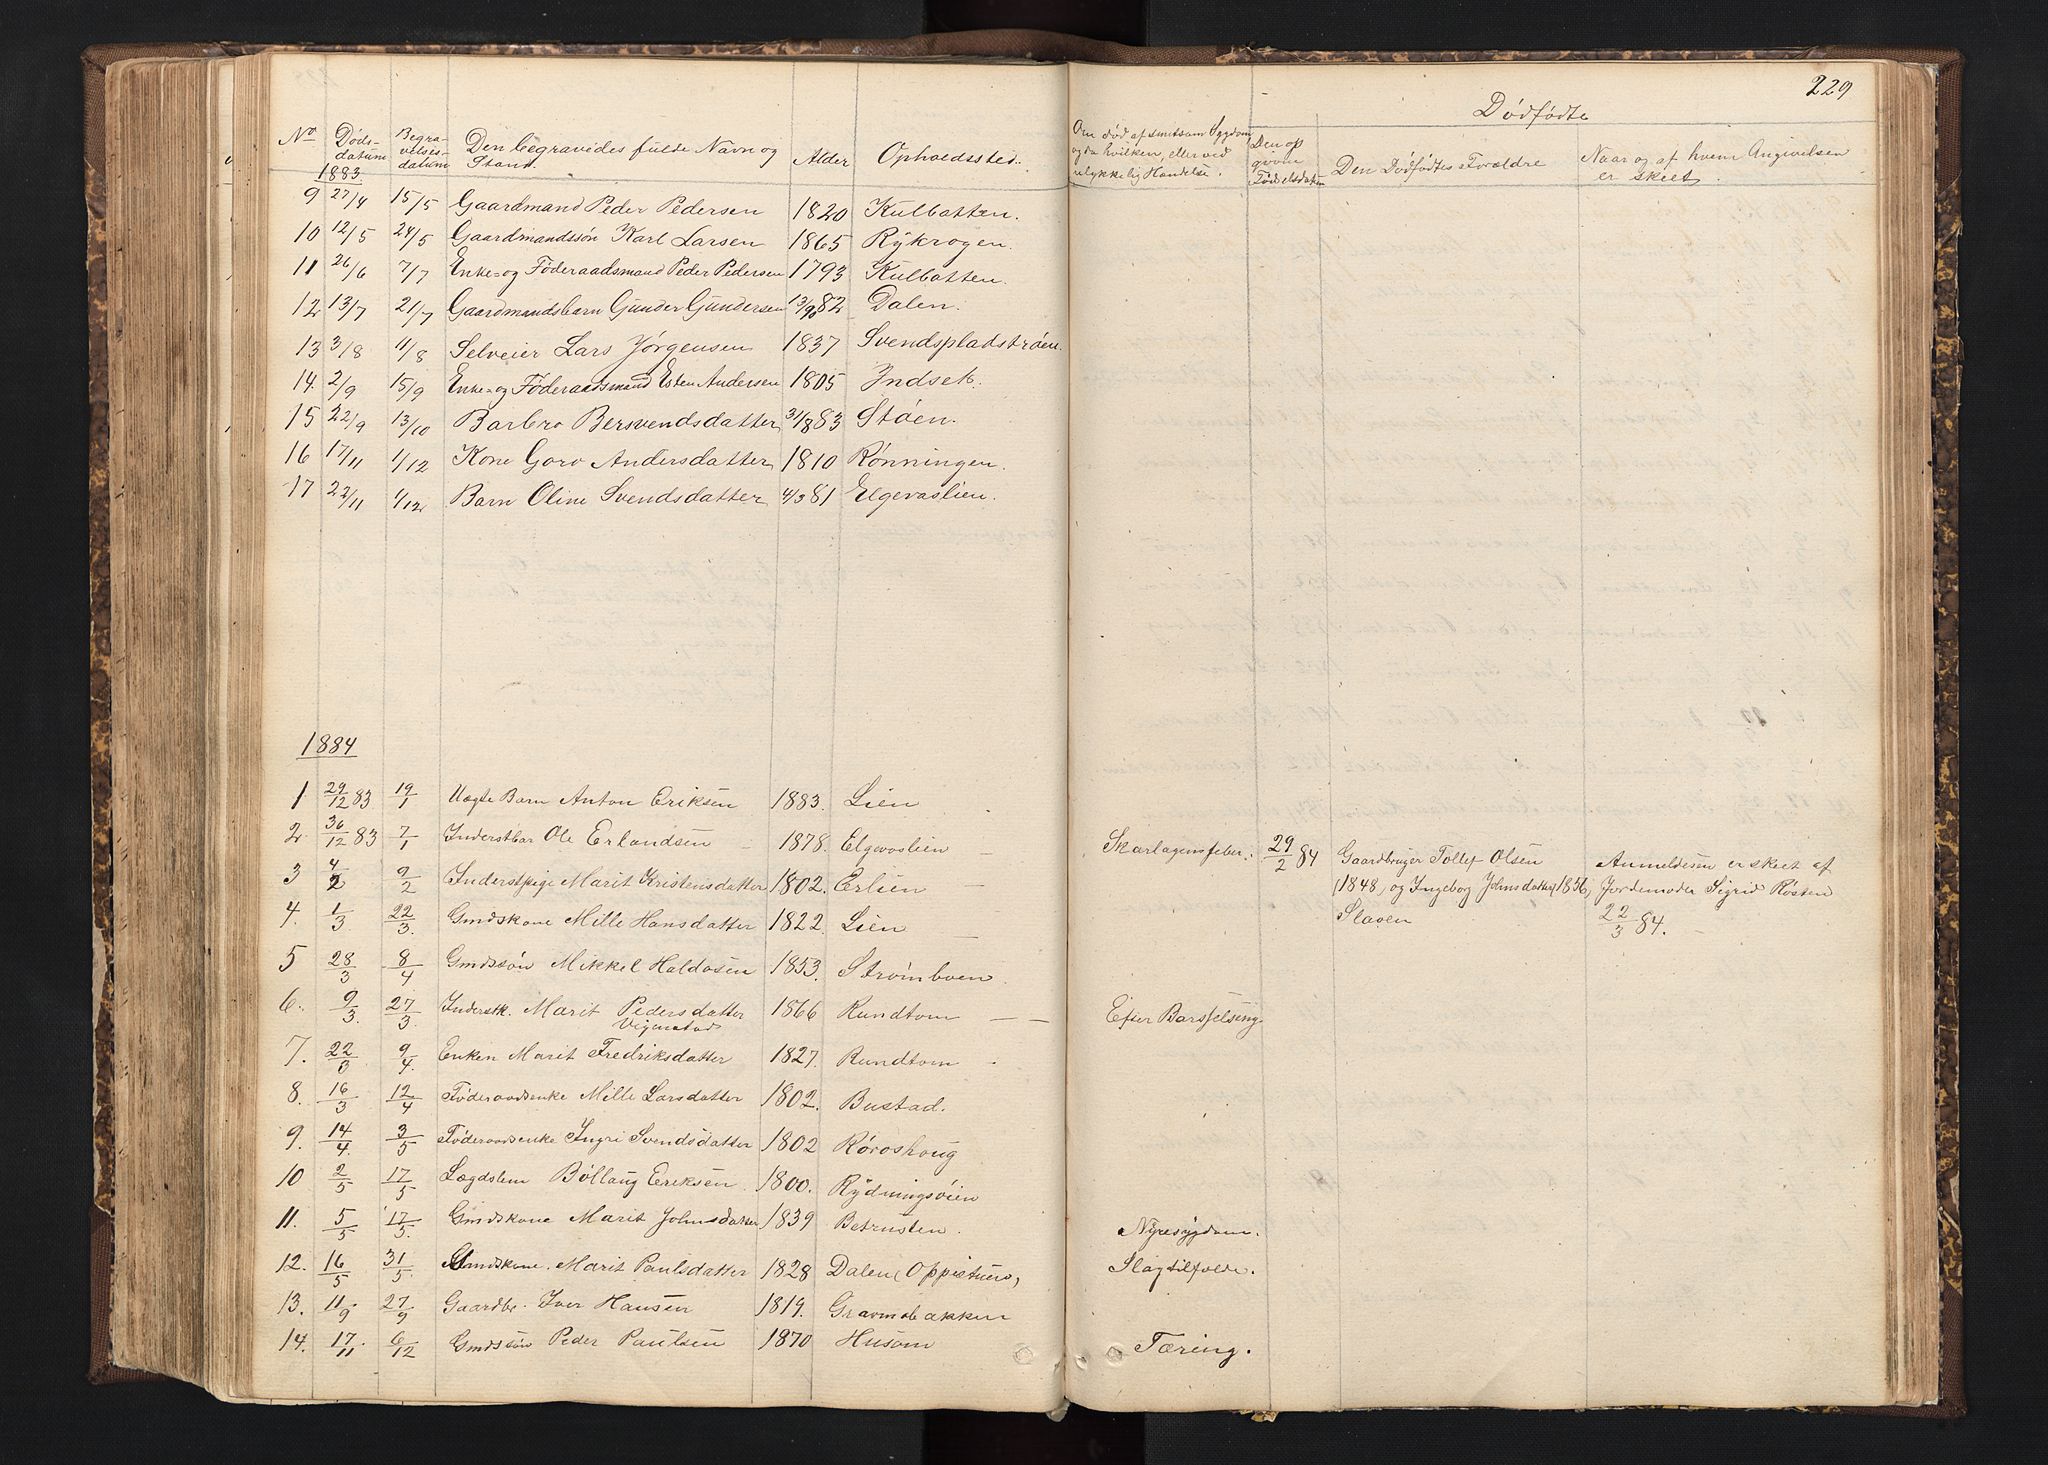 229
Dødfødte
No Døds-datum Begra-velses-datum Den begravedes fulde Navn og Stand Alder Opholdssted. Om død af smitsom Sygdom og da hvilken, eller ved ulykkelig Hændelse. Den opgivne Fødselsdatum Den Dødfødtes Forældre Naar og af hvem Angivelsen er skeet.
1883.
9 27/4 15/5 Gaardmand Peder Pedersen 1820 Kulbatten.
10 12/5 24/5 Gaardmandssøn Karl Larsen 1865 Rykrogen.
11 26/6 7/7 Enke- og Føderaadsmand Peder Pedersen 1793 Kulbatten.
12 13/7 21/7 Gaardmandsbarn Gunder Gundersen 82 Dalen.
13 3/8 11/8 Selveier Lars Jørgensen 1837 Svendspladstrøen.
14. 2/9 15/9 Enke- og Føderaadsmand Esten Andersen 1805 Indset.
15 22/9 13/10 Barbro Bersvendsdatter 31/8 83 Støen.
16 17/11 1/12 Kone Goro Andersdatter 1810 Rønningen.
17 22/11 1/12 Barn Oline Svendsdatter 4/3 81 Elgevaslien.
1884
1 29/12 83 19/1 Uægte Barn Anton Eriksen 1883. Lien
2 30/12 83 7/1 Inderstbar Ole Erlandsen 1878. Elgevaslien Skarlagensfeber. 29/2 84 Gaardbruger Tollef Olsen Anmeldesen er skeet af
3 4/2 9/2 Inderstpige Marit Kristensdatter 1802. Erlien (1848) og Ingebog Johnsdatter (1856) Jordemoder Sigrid Røsten
4. 1/3 22/3. Gmdskone Mille Hansdatter 1822. Lien Slaaen 22/3 84.
5 28/3 8/4 Gmdssøn Mikkel Haldosen 1853. Strømboen
6. 9/3. 27/3. Inderstk. Marit Pedersdatter 1866 Rundtom Efter Barsfelseng
Vigenstad
7. 22/3 9/4. Enken Marit Fredriksdatter 1827. Rundtom
8. 16/3 12/4 Føderaadsenke Mille Larsdatter 1802. Bustad.
9. 14/4. 3/5 Føderaadsenke Ingri Svendsdatter 1802 Røroshoug
10 2/5 17/5 Lægdslem Bøllaug Eriksen 1800. Rydningsøien
11. 5/5 17/5. Gmdskone Marit Johnsdatter 1839 Betrusten. Nyresygdom.
12. 16/5 31/5. Gmdskone. Marit Paulsdatter 1828 Dalen (Oppistuen) Slagtilfælde.
13. 11/9 27/9 Gaardbr. Iver Hansen 1819. Gravmobakken
14. 17/11 6/12 Gmdssøn Peder Paulsen 1870 Husom Tæring.